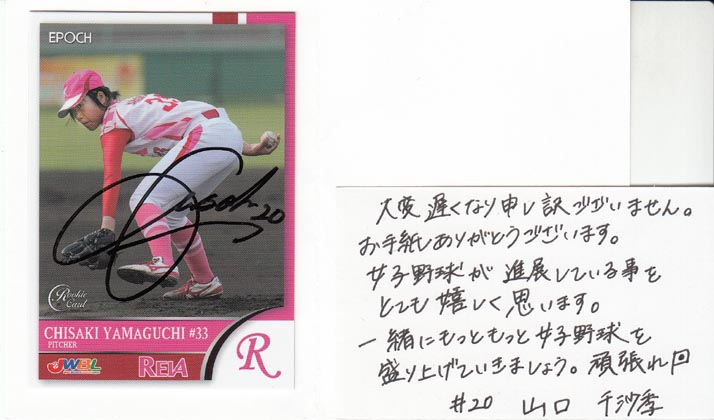 EPOCH
Rookie Card
CHISAKI YAMAGUCHI #33
PITCHER
JWBL
REIA
R
20
大変遅くなり申し訳ございません。
お手紙ありがとうございます。
女子野球が進展している事を
とても嬉しく思います。
一緒にもっともっと女子野球を
盛り上げていきましょう。頑張れ
#20 山口 千沙季